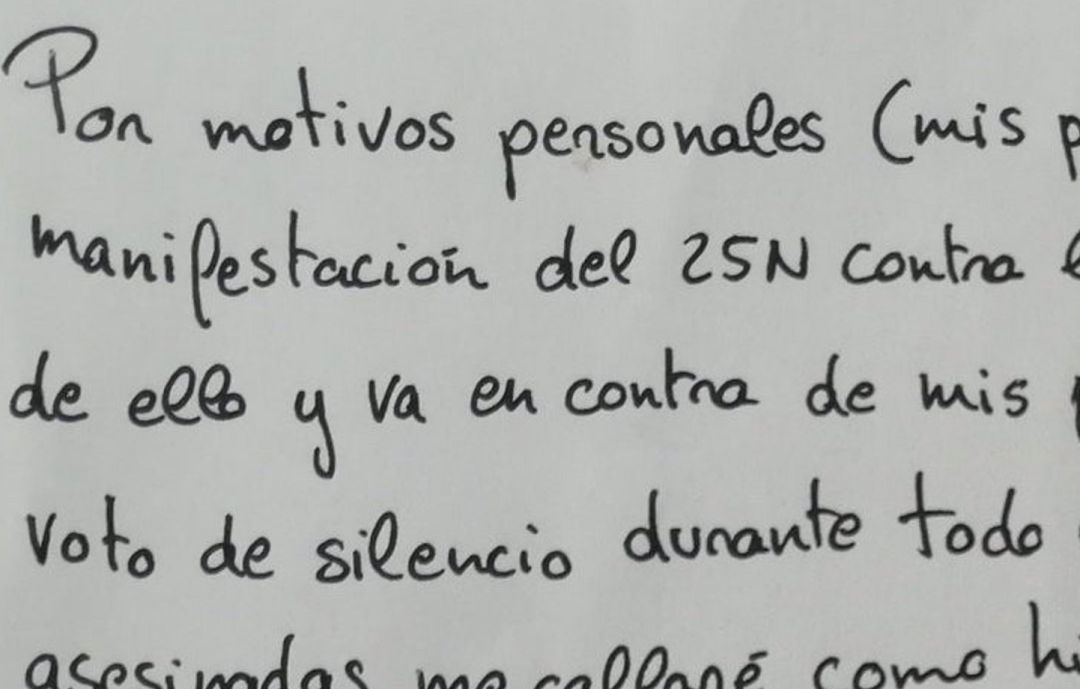 Por motivos personales (mis
manifestación del 25N contra
de ello y va en contra de mis
voto de silencio durante todo
asesinadas me callaré como